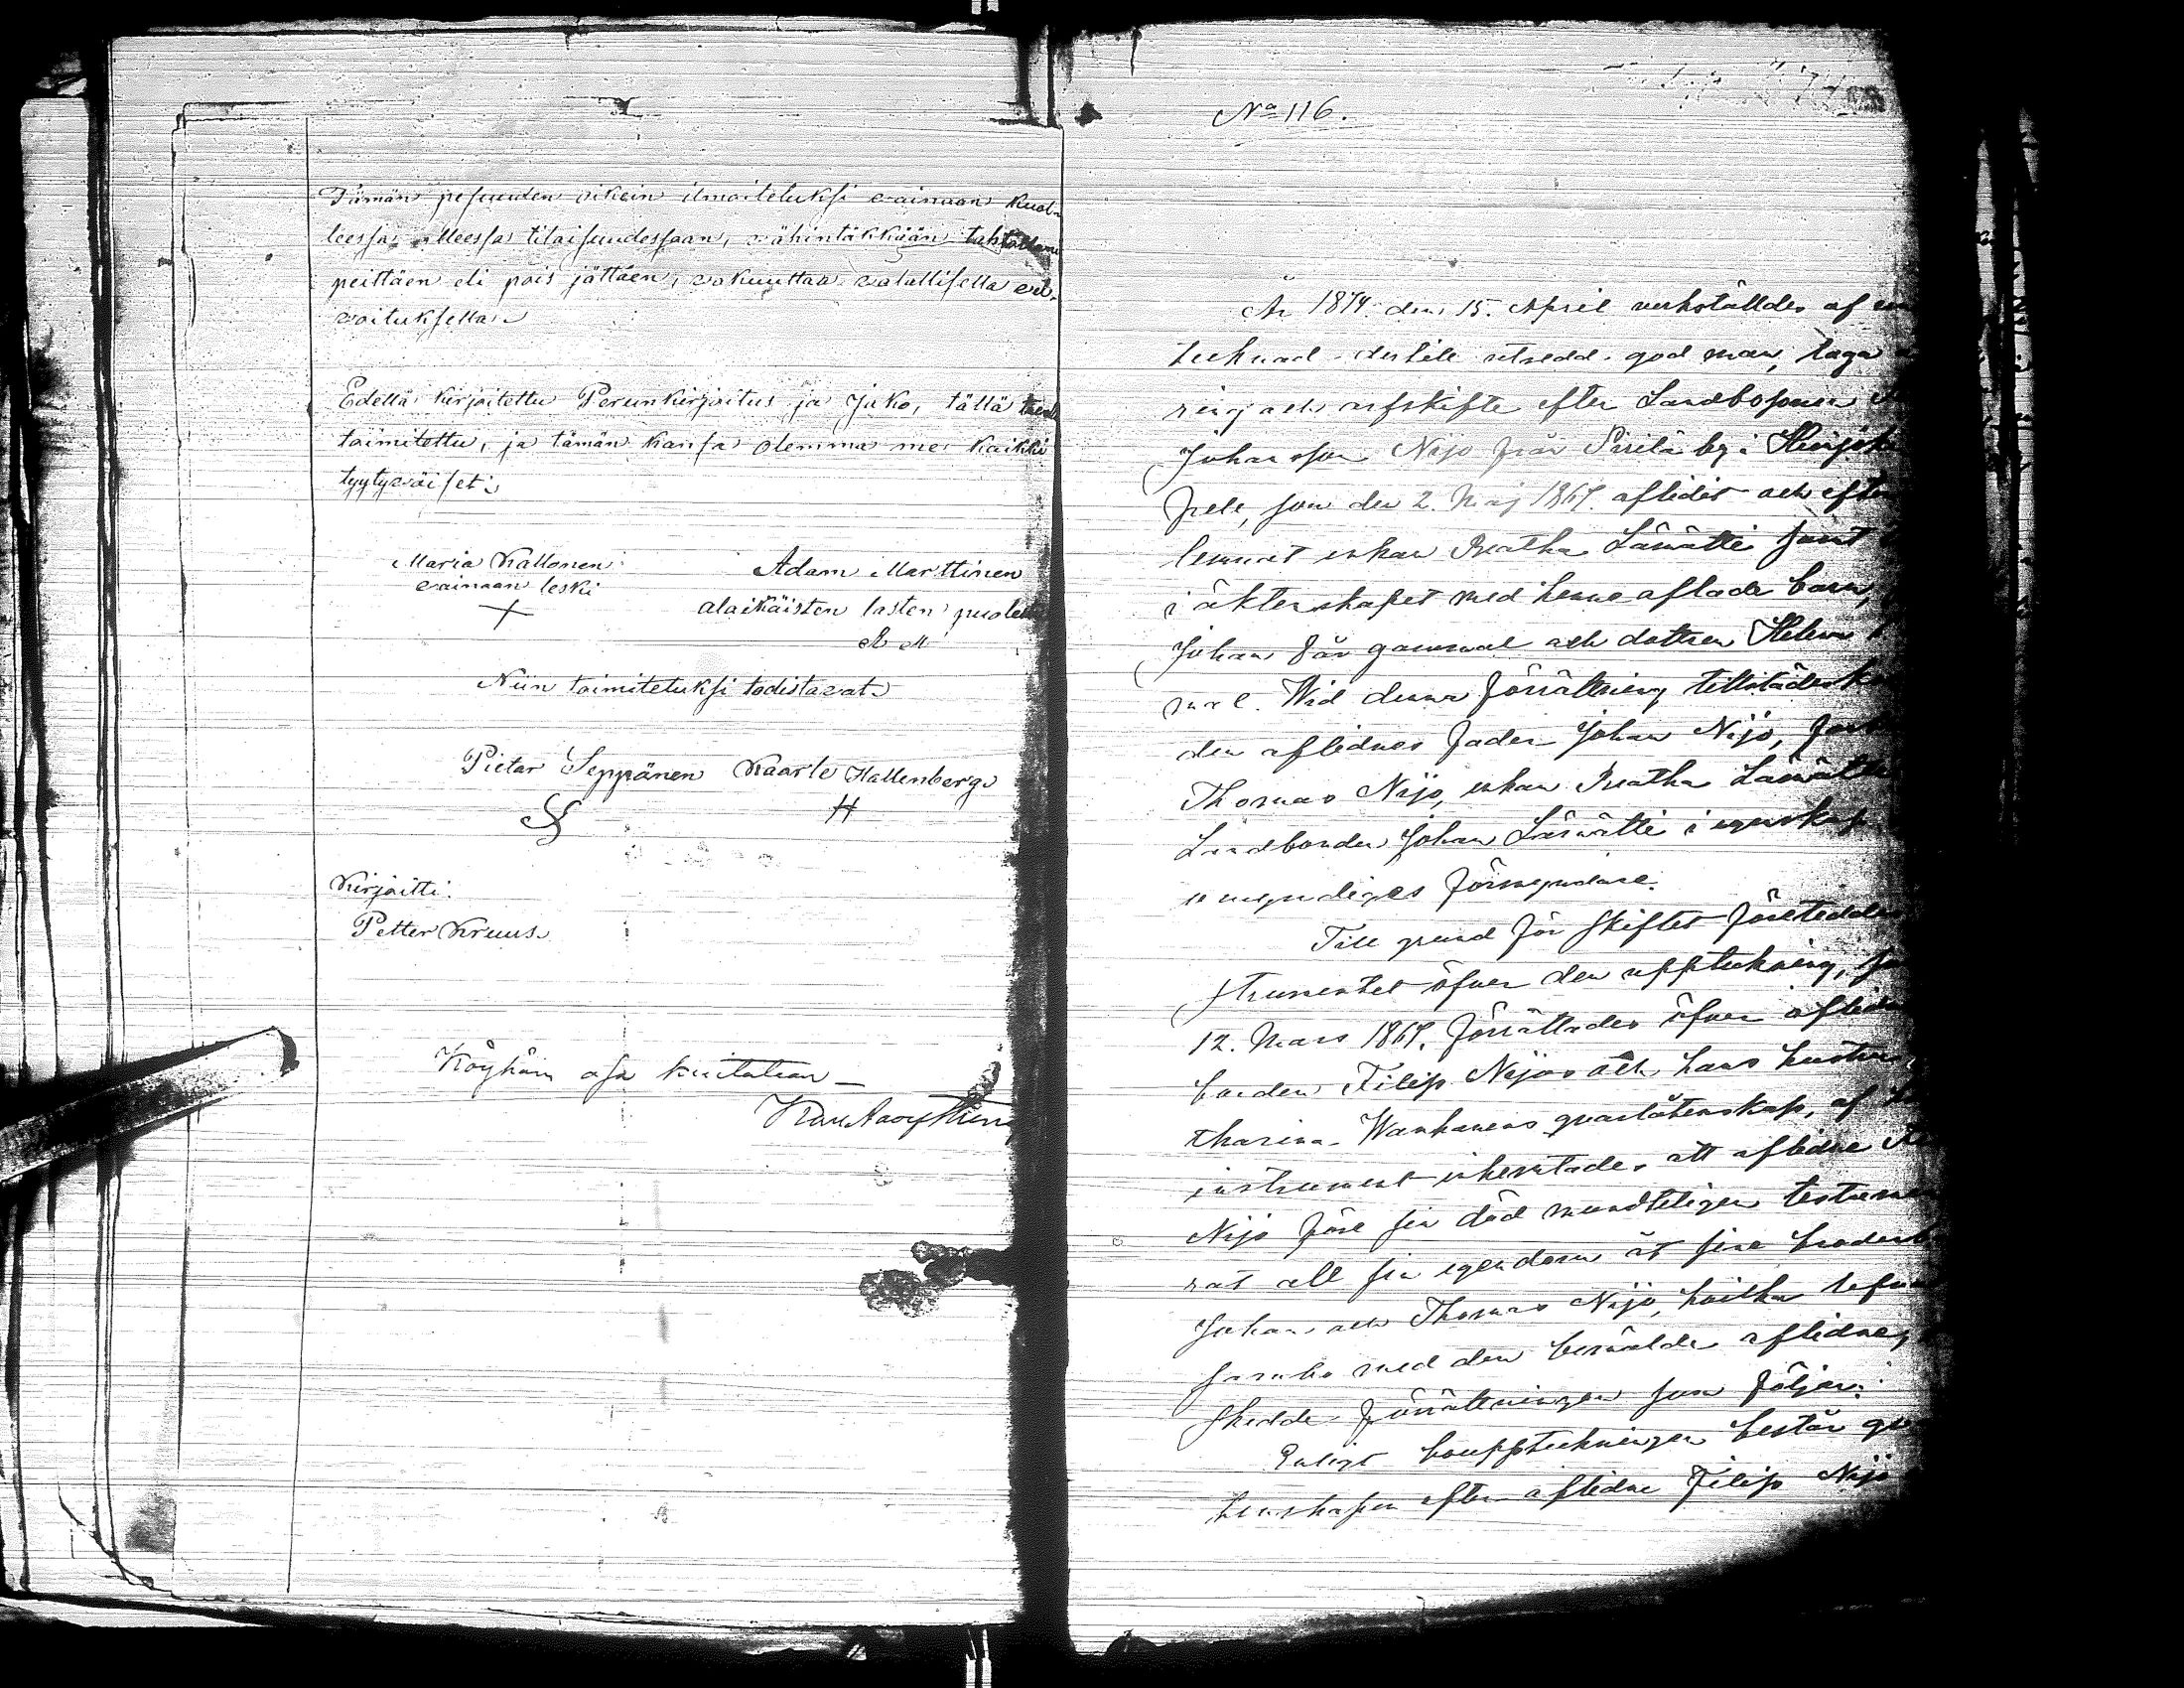 Tämän pesuuden oikein ilmoiteluksi vainaan kuol-
leessa olleessa tilaisuudessaan, vähintäkkään tahtollani
peittäen eli pois jättäen, vakuuttaa valallisella vel-
voituksella.
Edellä kirjoitettu Perunkirjoitus ja Jako, tällä
toimitettu, ja tämän kansa olemma me kaikki
tyytyväiset.
Maria Kallonen Adam Marttinen
vainaan leski alaikäisten lasten puolesta
A M
Niin toimiteluksi todistavat
Pietar Seppänen Kaarle Hallenberg
H
Kirjoitti:
Petter Kruus.
Köyhäin osa kuitataan
No 116.
År 1874 den 15. April verkställdes af
tecknad dertill utsedd god man, laga
ring och arfskifte efter Landbosonen
Johansson Nijo från Sirilä by i
som den 2. Maj 1867. afliden och efter
lemnat enkan Beatha Läwätti samt
i äktenskapet med henne aflade barn,
Johan år gammal och dottren Helena
mal. Wid denna förrättning tillstädes
den aflidnes fader Johan Nijo,
Thomas Nijo, enkan Beatha Läwätti
Landbonden Johan Läwätti i egenskap
omyndiges förmyndare.
Till grund för skiftet företeddes
strumentet öfver den uppteckning,
12. Mars 1867. förrättades öfver aflidne
bonden Filip Nijos och hans hustru
tharina Wankanens qvarlåtenskap, af
instrument inhemtades att aflidne
Nijo före sin död mundteligen
rat all sin egendom åt sine
Johan och Thomas Nijo, hvilka
med den bemälde aflidne,
skedde förrättningen som följer:
Enligt bouppteckningen består
tenskapen efter aflidne Filip Nijo